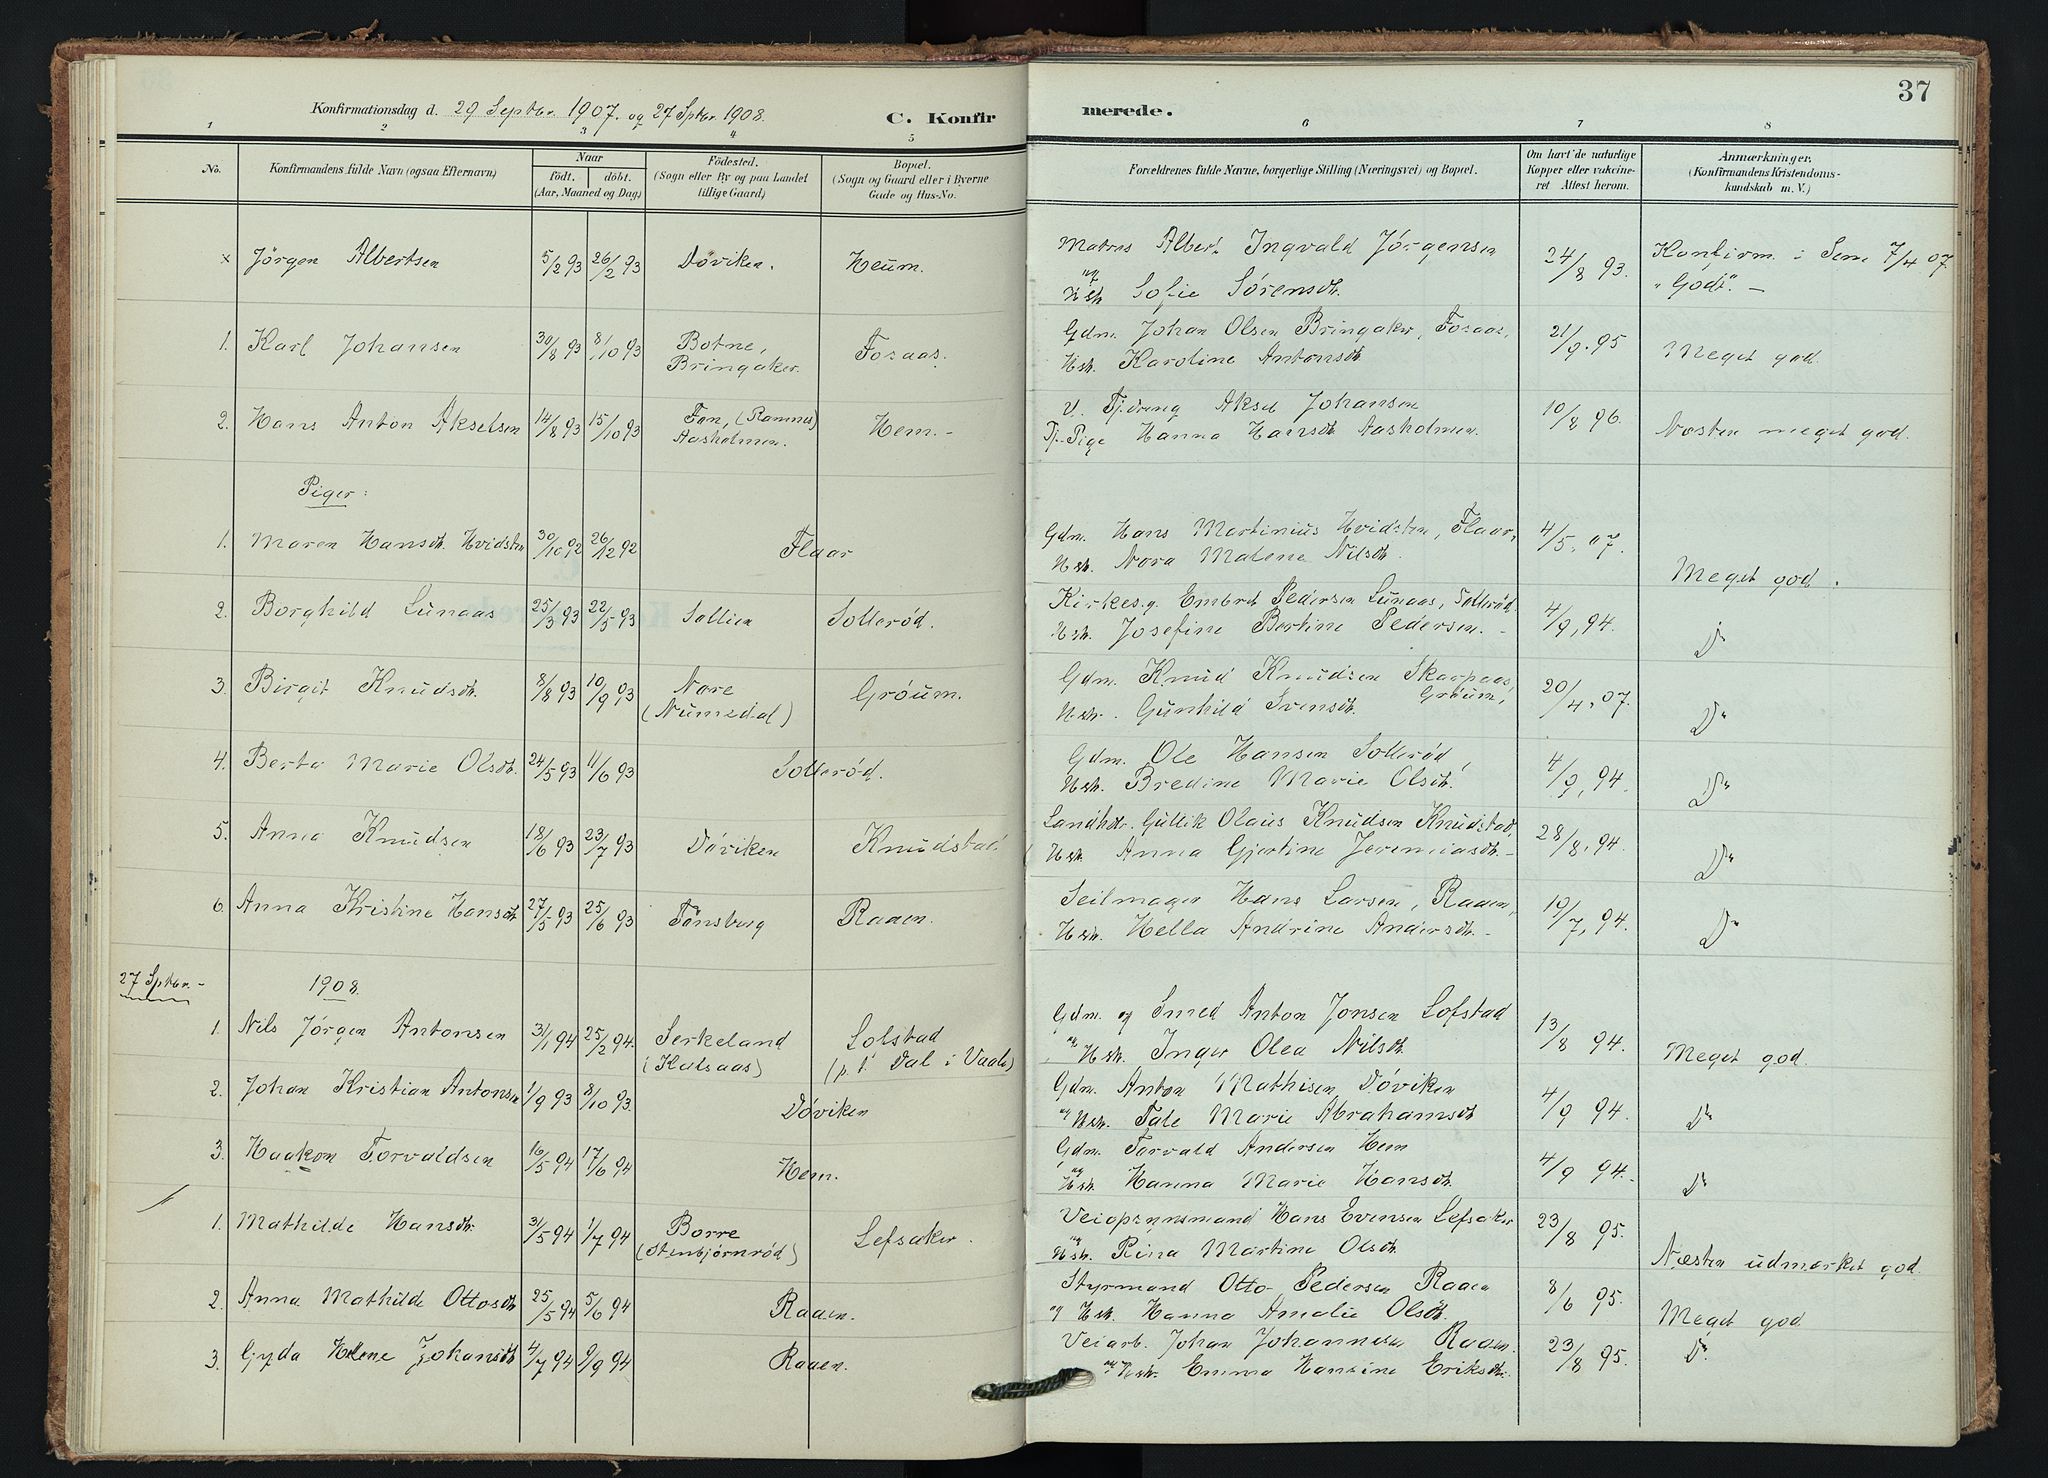 37
Konfirmationsdag d. 29 Septbr. 1907. og 27 Sptbr. 1908.
C. Konfir
merede.
1 2 3 4 5 6 7 8
No.
Konfirmandens fulde Navn (ogsaa Efternavn)
Naar
födt. döbt.
(Aar, Maaned og Dag)
Födested.
(Sogn eller By og paa Landet
tillige Gaard)
Bopæl.
(Sogn og Gaard eller i Byerne
Gade og Hus-No.
Forældrenes fulde Navne, borgerlige Stilling (Næringsvei) og Bopæl.
Om havt de naturlige
Kopper eller vakcine-
ret Attest herom.
Anmærkninger.
(Konfirmandens Kristendoms-
kundskab m. V.)
x Jørgen Albertsen 5/2 93 26/2 93 Döviken. Heum. Matros Albert Ingvald Jørgensen 24/8 93. Konfirm. i Sem 7/4 07.
og Hstr. Sofie Sørensdtr. "Godt". —
1. Karl Johansen 30/8 93 8/10 93 Botne, Fosaas. Gdm. Johan Olsen Bringaker, Fosaas, 21/9. 95 Meget god.
Bringaker. Hstr. Karoline Antonsdtr.
2. Hans Anton Akselsen 14/8 93 15/10 93 Fon, (Ramnes) Hem. - U. Tj.dreng Aksel Johansen 10/8 96. Næsten meget god.
Aasholmen. Tj.-Pige Hanna Hansdtr. Aasholmen.
Piger:
1. Maren Hansdtr. Hvidsten 30/10 92 26/12 92 Flaar Gdm. Hans Martinius Hvidsten, Flaar, 4/5, 07.
Hstr. Nora Malene Nilsdtr. Meget god.
2. Borghild Lunaas 25/3 93 22/5 93 Sollien Sollerød. Kirkes.g. Embret Pedersen Lunaas, Sollerød. 4/9, 94.
Hstr. Josefine Bertine Pedersen. - Do
3. Birgit Knudsdtr. 8/8 93 10/9 93 Nore Gröum. Gdm. Knud Knudsen Skarpaas, 20/4, 07.
(Numedal) Gröum,
Hstr. Gunhild Svensdtr. Do
4. Berta Marie Olsdtr. 24/5 93 11/6 93 Sollerød. Gdm. Ole Hansen Sollerød, 4/9, 94.
Hstr. Bredine Marie Olsdtr. Do
5. Anna Knudsen 18/6 93 23/7 93 Döviken Knudstad. Landhdr. Gullik Olaus Knudsen Knudstad, 28/8, 94.
Hstr. Anna Gjertine Jeremiasdtr. - Do
6. Anna Kristine Hansdtr. 27/5 93 25/6 93 Tönsberg Raaen. Seilmager Hans Larsen, Raaen, 19/7, 94.
Hstr. Hella Andrine Andersdtr. - Do
27 Sptbr. - 1908.
1. Nils Jørgen Antonsen 31/1 94 25/2 94. Serkeland Lofstad Gdm. og Smed Anton Jonsen Lofstad 13/8 94.
(Kalsaas) (p.t. Dal i Vaale) og Hstr. Inger Olea Nilsdtr. Meget god.
2. Johan Kristian Antonsen 1/9 93 8/10 93. Döviken Gdm. Anton Mathisen Döviken 4/9 94.
og Hstr. Tale Marie Abrahamsdtr. Do
3. Haakon Torvaldsen 16/5 94 17/6 94 Hem. Gdm. Torvald Andersen Hem 4/9 94.
og Hstr. Hanna Marie Hansdtr. Do
1. Mathilde Hansdtr. 31/5 94 1/7 94 Borre Lefsaker. Veiopsynsmand Hans Evensen Lefsaker 23/8 95.
(Stenbjørnrød) og Hstr. Rina Martine Olsdtr. Næsten udmærket god.
2. Anna Mathilde Ottosdtr. 25/5 94 5/6 94 Raaen. Styrmand Otto Pedersen Raaen 8/6 95.
og Hstr. Hanna Amalie Olsdtr. Meget god
3. Gyda Helene Johansdtr. 4/7 94 9/9 94 Raaen. Veiarb. Johan Johannesen Raaen. 23/8 95. Do.
og Hstr. Emma Hansine Eriksdtr.